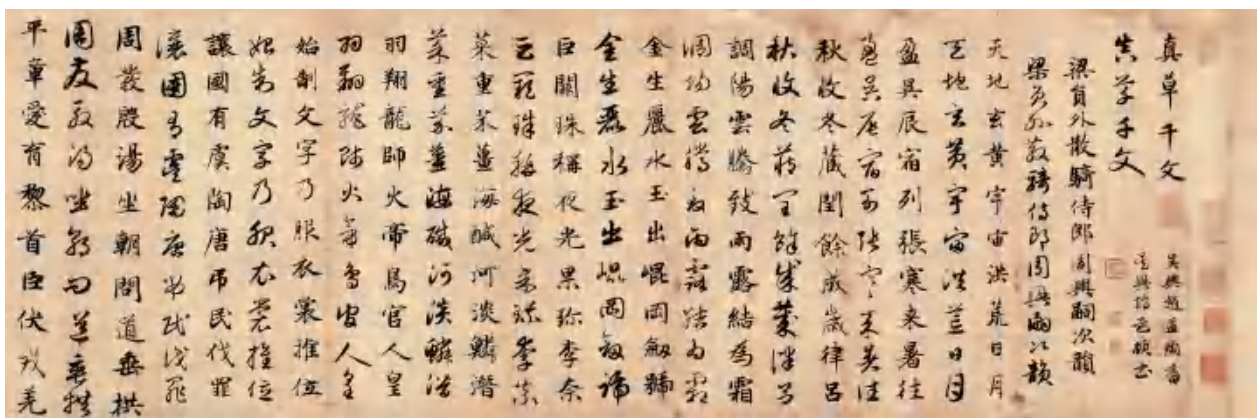 真草千文
吳興趙孟頫書
真草千文
吳興趙孟頫書
梁員外散騎侍郎周興嗣次韻
梁員外散騎侍郎周興嗣次韻
天地玄黃宇宙洪荒日月
天地玄黃宇宙洪荒日月
盈昃辰宿列張寒来暑往
盈昃辰宿列張寒来暑往
秋收冬藏閏餘成歲律吕
秋收冬藏閏餘成歲律吕
調陽雲騰致雨露結為霜
調陽雲騰致雨露結為霜
金生麗水玉出崐岡劒號
金生麗水玉出崐岡劒號
巨闕珠稱夜光果珍李柰
巨闕珠稱夜光果珍李柰
菜重芥薑海醎河淡鱗潛
菜重芥薑海醎河淡鱗潛
羽翔龍師火帝鳥官人皇
羽翔龍師火帝鳥官人皇
始制文字乃服衣裳推位
始制文字乃服衣裳推位
讓國有虞陶唐弔民伐罪
讓國有虞陶唐弔民伐罪
周發殷湯坐朝問道垂拱
周發殷湯坐朝問道垂拱
平章愛育黎首臣伏戎羌